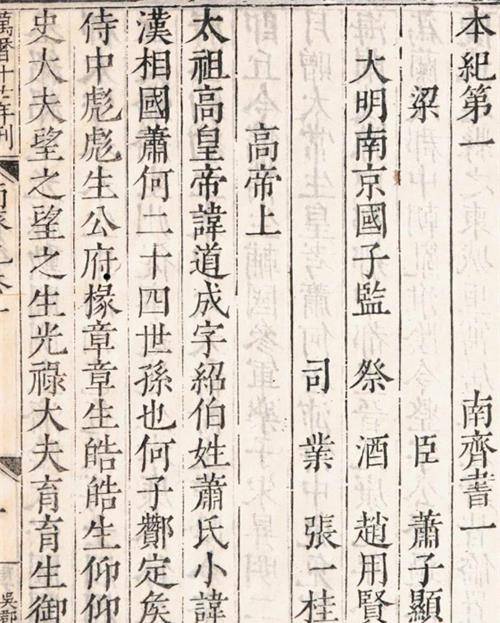 本紀第一 南齊書一
梁 臣 蕭子顯
大明南京國子監 祭 酒 趙用賢
司 業 張一桂
高帝上
太祖高皇帝諱道成字紹伯姓蕭氏小諱
漢相國蕭何二十四世孫也何子酇定矦
侍中彪彪生公府椽章章生皓皓生仰仰
史大夫望之望之生光祿大夫育育生御
萬曆十七年刊
吳郡